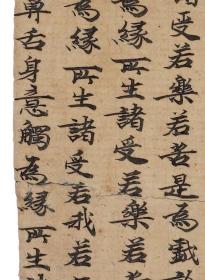 諸受若樂若苦是為戲
為緣所生諸受若樂若
為緣所生諸受若我若
鼻舌身意觸為緣所生